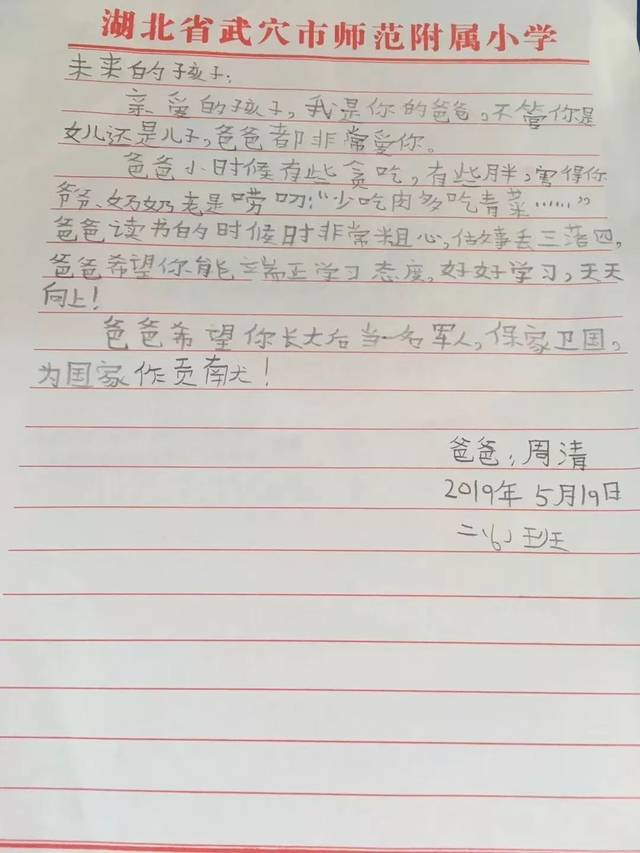 湖北省武穴市师范附属小学
未来的孩子:
亲爱的孩子,我是你的爸爸,不管你是
女儿还是儿子,爸爸都非常爱你。
爸爸小时候有些贪吃,有些胖,害得你
爷爷、奶奶老是唠叨:“少吃肉多吃青菜……”
爸爸读书的时候时非常粗心,做事丢三落四,
爸爸希望你能端正学习态度,好好学习,天天
向上!
爸爸希望你长大后当一名军人,保家卫国,
为国家作贡献!
爸爸:周清
2019年5月19日
二(6)班